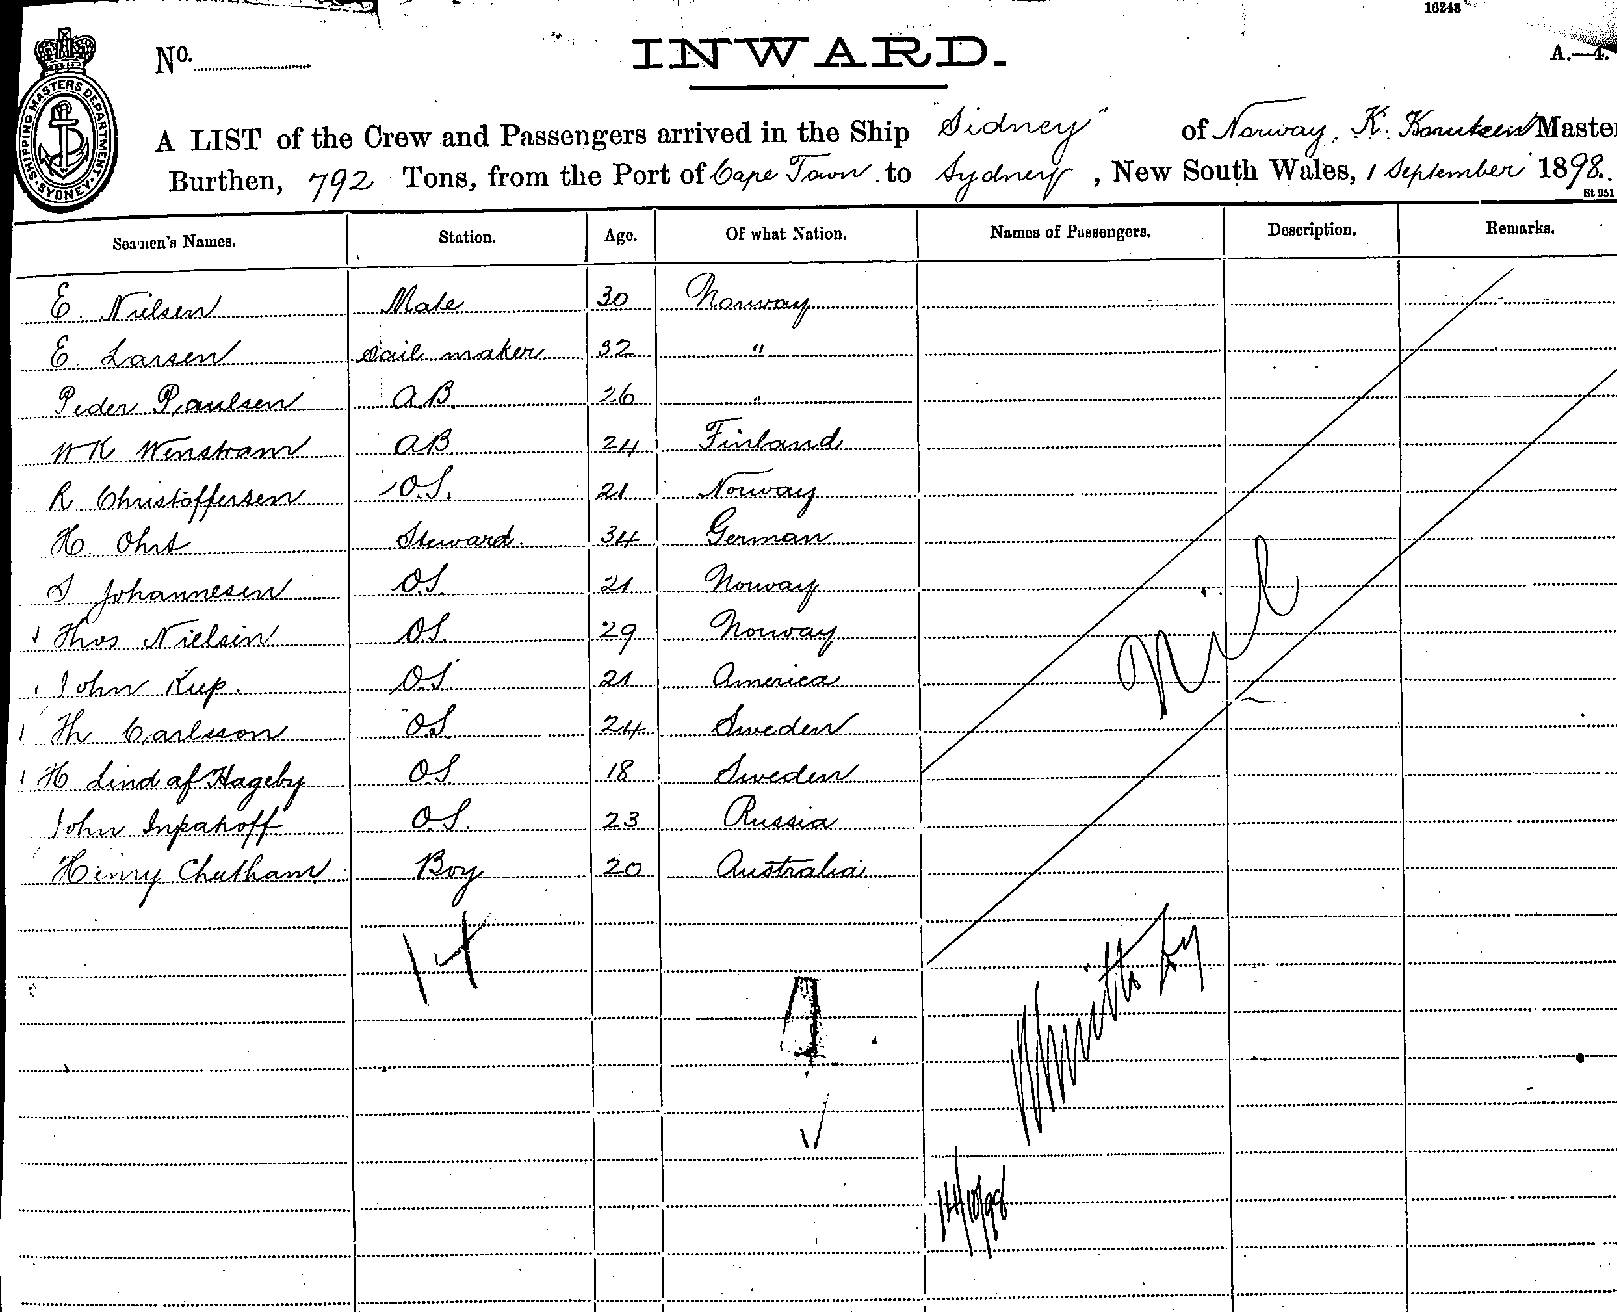 16248
No.
INWARD.
A.—4.
SHIPPING MASTERS DEPARTMENT · SYDNEY ·
A LIST of the Crew and Passengers arrived in the Ship "Sidney" of Norway, K. Master
Burthen, 792 Tons, from the Port of Cape Town to Sydney, New South Wales, 1 September 1898.
St 951
Seamen's Names. Station. Age. Of what Nation. Names of Passengers. Description. Remarks.
E. Nielsen Mate 30 Norway
E. Larsen Sail maker 32 "
Peder Paulsen A.B. 26 "
WK Wenstram AB 24 Finland
R Christoffersen O.S. 21 Norway
H. Ohrt Steward 34 German
S Johannesen O.S. 21 Norway
Thos Nielsen OS 29 Norway
John Kup. O.S. 21 America
Th Carlsson OS 24 Sweden
H Lind af Hageby OS 18 Sweden
John Inpahoff O.S. 23 Russia
Henry Chatham Boy 20 Australia
Nil
14